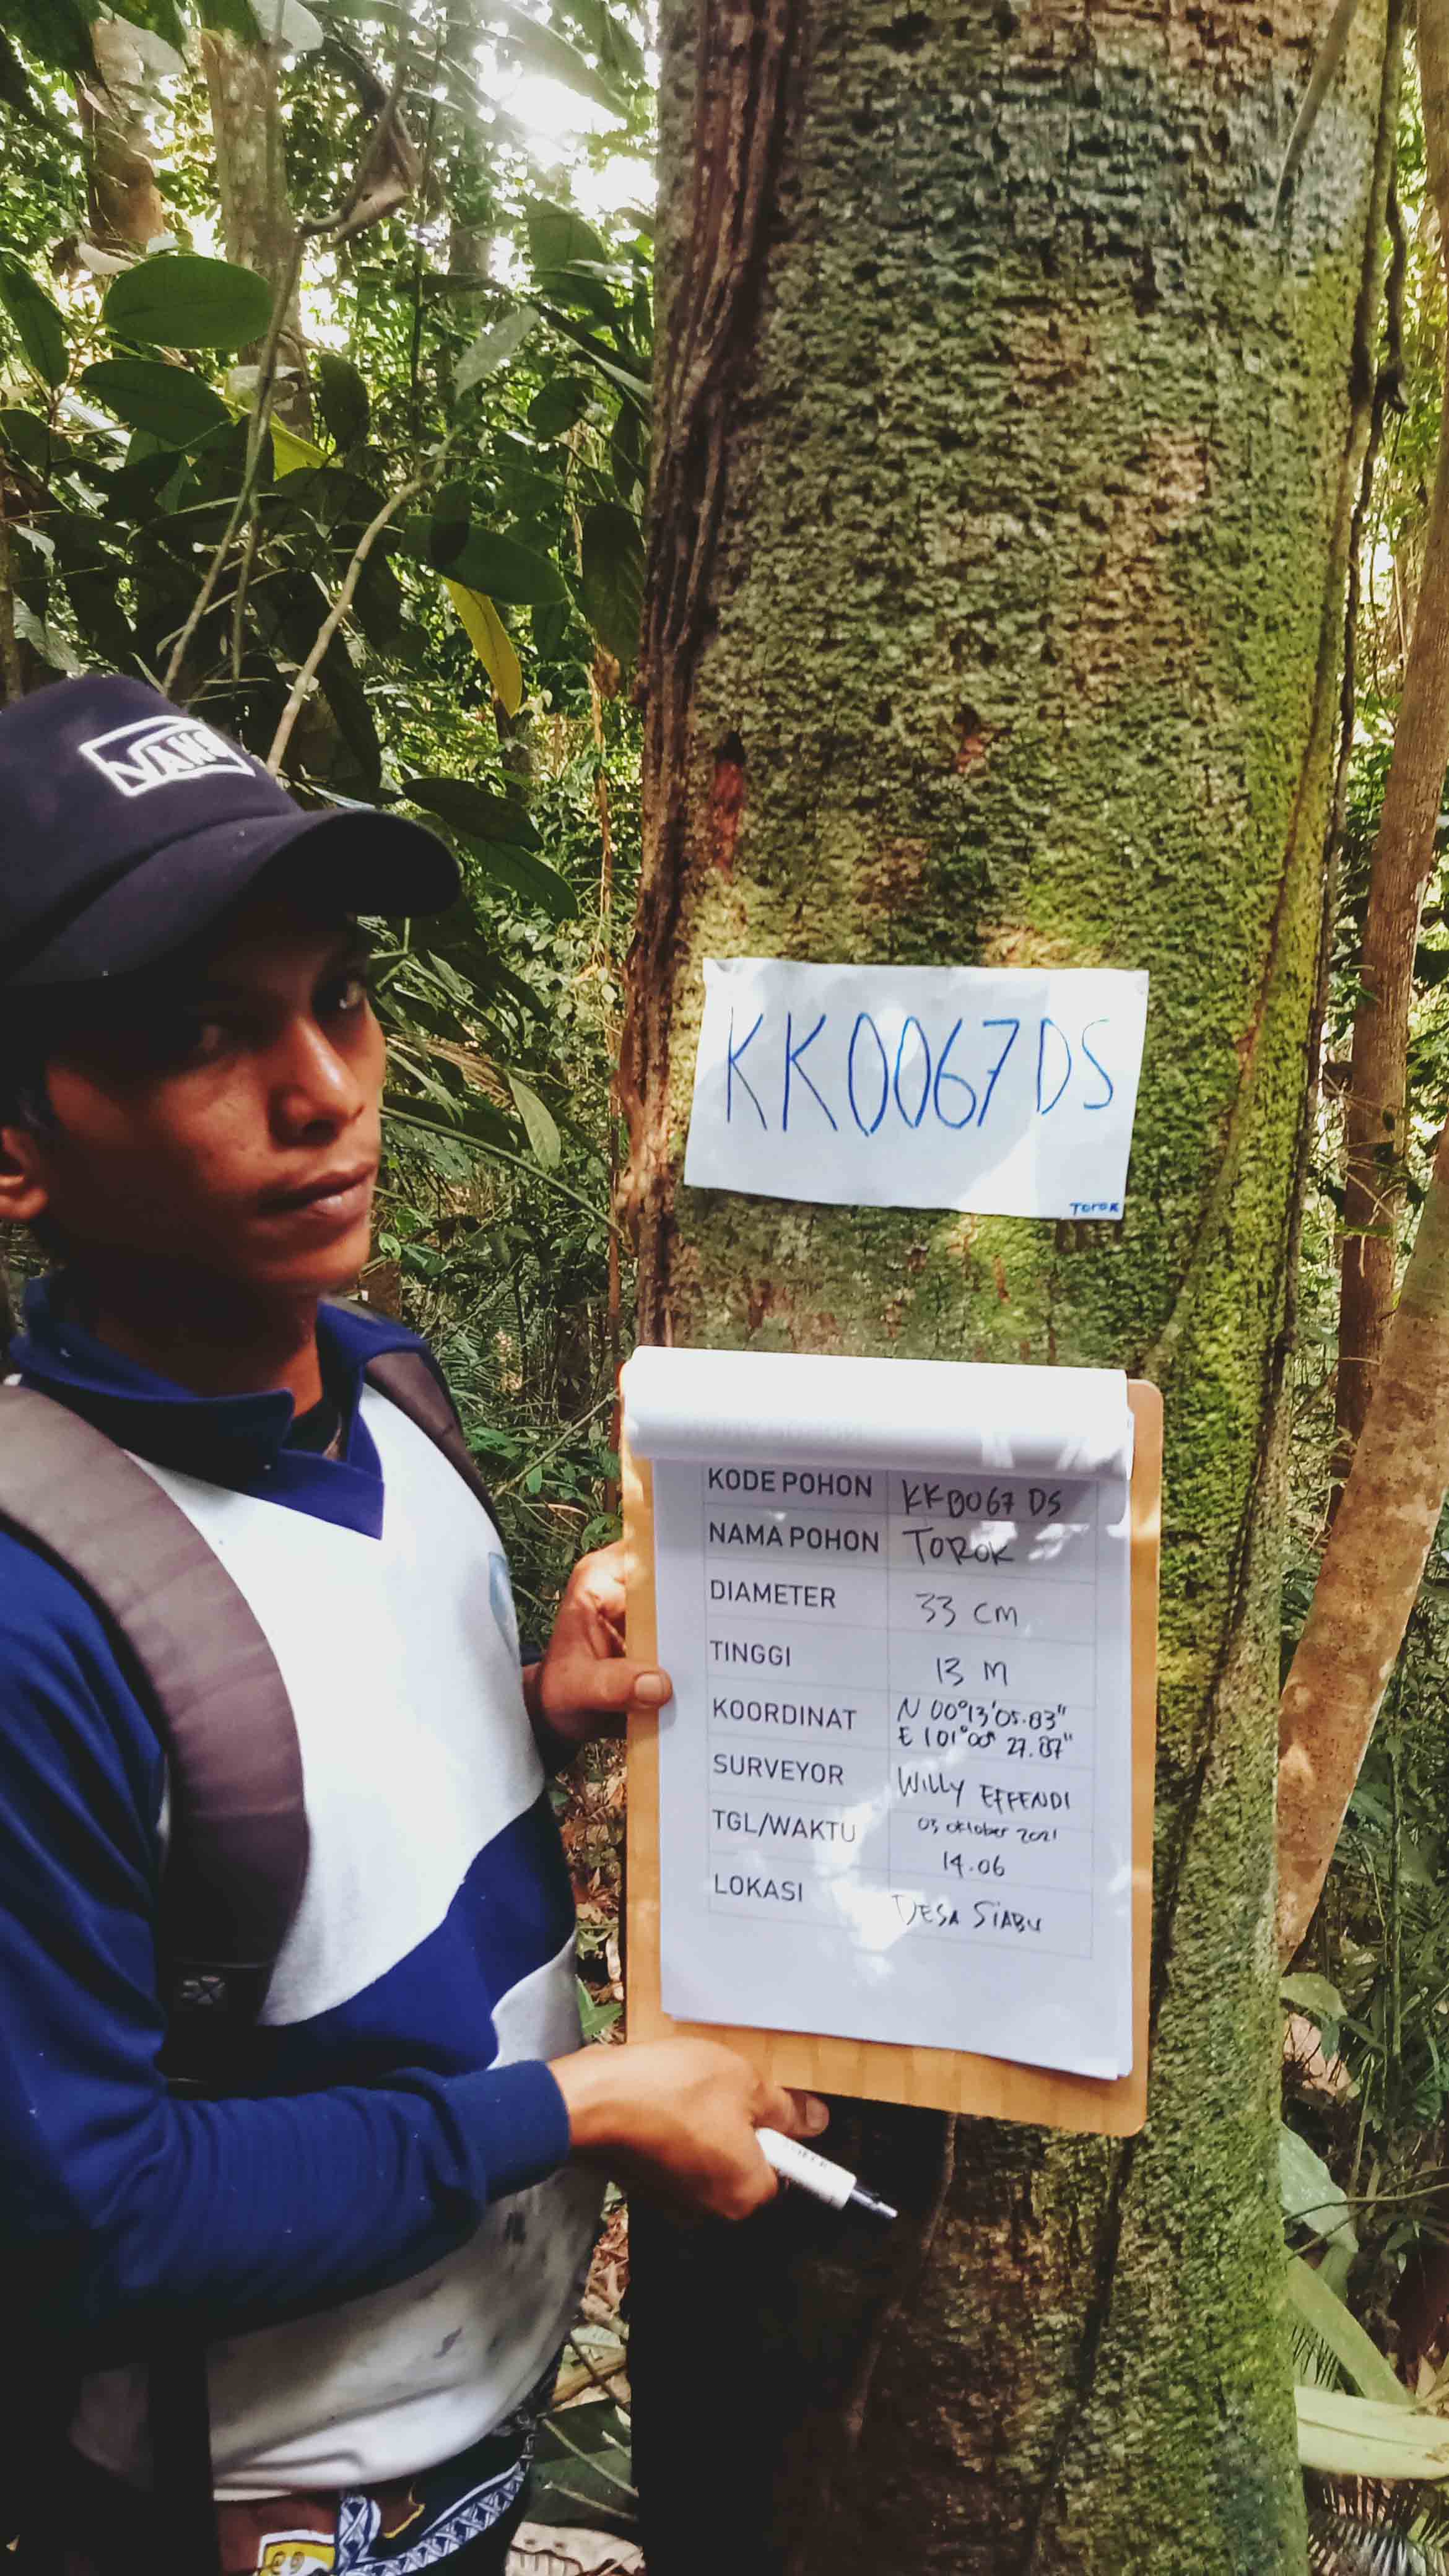 VANS
KK0067DS
TOROK
KODE POHON KK0067 DS
NAMA POHON TOROK
DIAMETER 33 CM
TINGGI 13 M
KOORDINAT N 00°13'05.83"
E 101°00' 27.87"
SURVEYOR WILLY EFFENDI
TGL/WAKTU 03 oktober 2021
14.06
LOKASI DESA SIABU